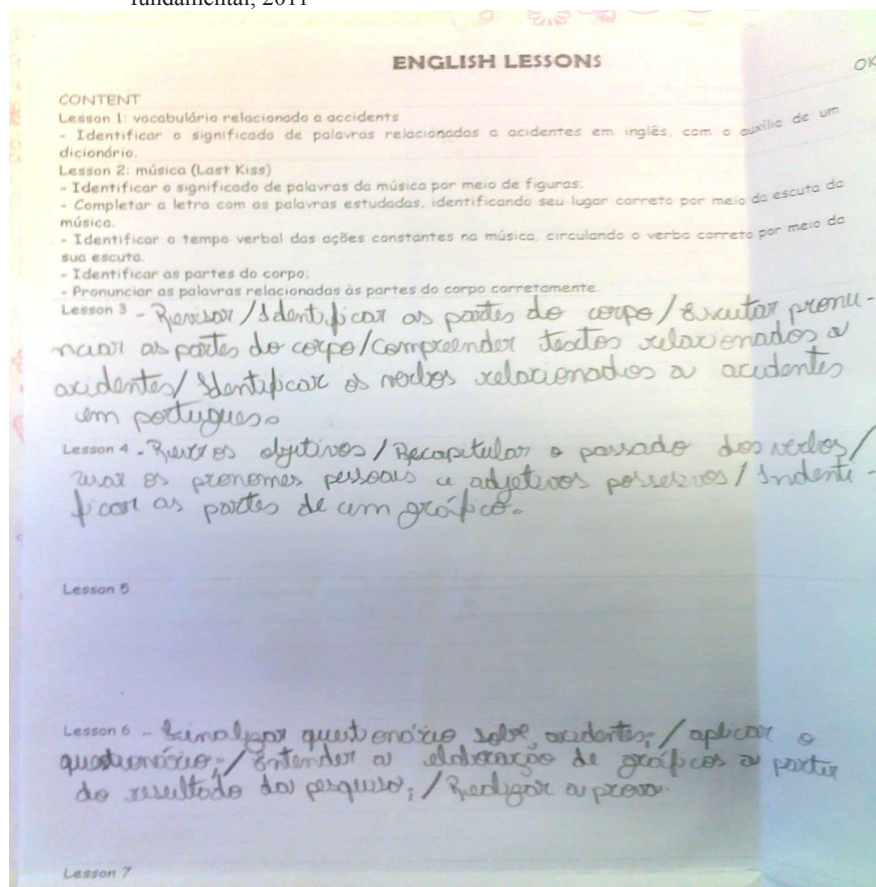 fundamental, 2011
ENGLISH LESSONS
OK
CONTENT
Lesson 1: vocabulário relacionado a accidents
- Identificar o significado de palavras relacionadas a acidentes em inglês, com o auxílio de um
dicionário.
Lesson 2: música (Last Kiss)
- Identificar o significado de palavras da música por meio de figuras;
- Completar a letra com as palavras estudadas, identificando seu lugar correto por meio da escuta da
música.
- Identificar o tempo verbal das ações constantes na música, circulando o verbo correto por meio da
sua escuta.
- Identificar as partes do corpo;
- Pronunciar as palavras relacionadas às partes do corpo corretamente.
Lesson 3 - Revisar / Identificar as partes do corpo / Escutar pronu-
nciar as partes do corpo / compreender textos relacionados a
acidentes / Identificar os verbos relacionados a acidentes
em portugues.
Lesson 4 - objetivos / Recapitular o passado dos verbos /
usar os pronomes pessoais e adjetivos possesivos / Indenti-
ficar as partes de um gráfico.
Lesson 5
Lesson 6 - Finalizar questionário sobre acidentes; / aplicar o
questionário; / Entender a elaboração de gráficos a partir
do resultado da pesquisa; / Redigar a prova.
Lesson 7